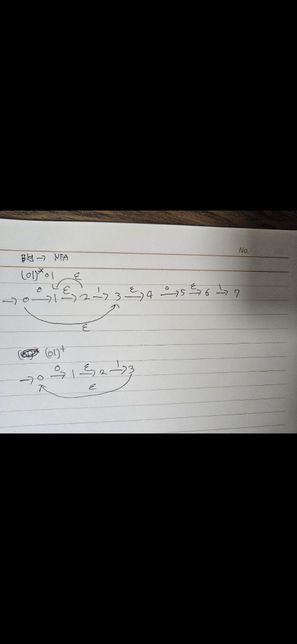 No.
→ NFA
(01)*01
→ 0 →0 1 →ε 2 →1 3 →ε 4 →0 5 →ε 6 →1 7
ε
ε
(01)+
→ 0 →0 1 →ε 2 →1 3
ε